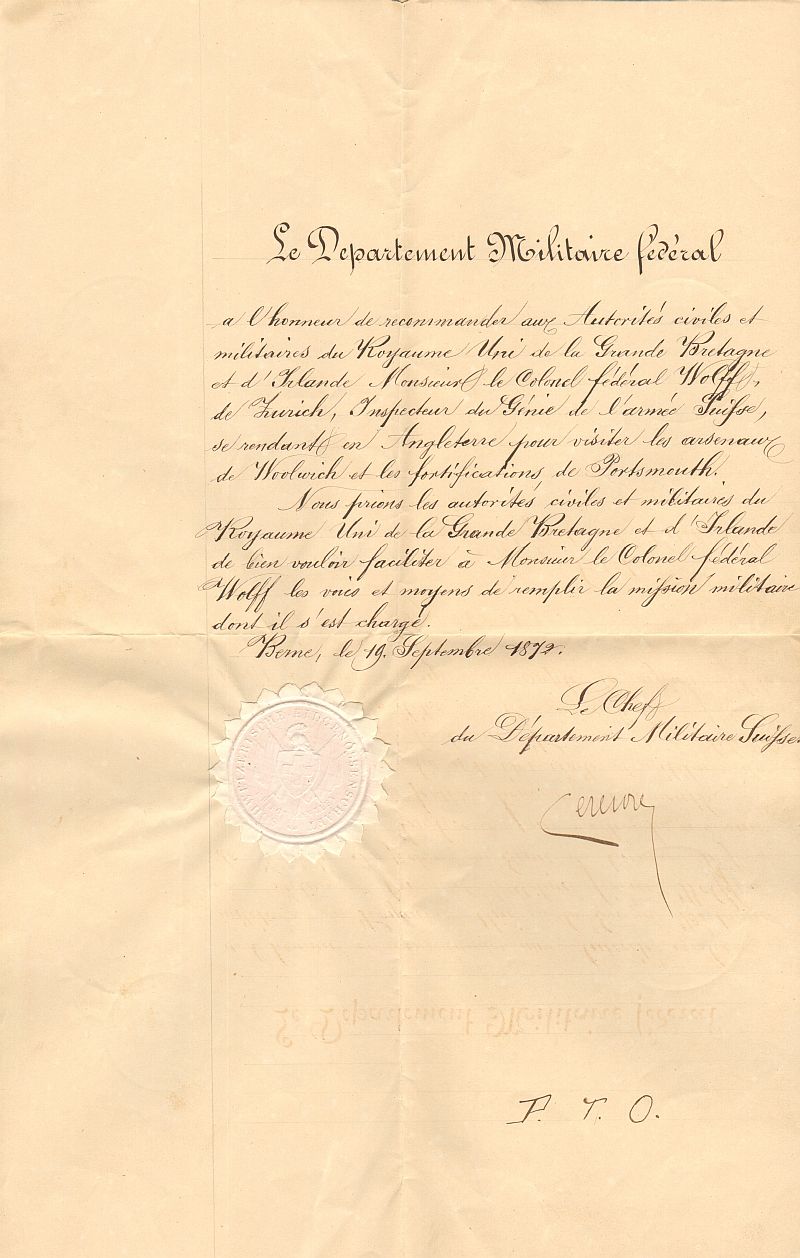 Le Departement Militaire fédéral
a l'honneur de recommander aux Autorités civiles et
militaires du Royaume Uni de la Grande Bretagne
et d'Irlande Monsieur le Colonel fédéral Wolff,
de Zurich, Inspecteur du Génie de l'armée Suisse,
se rendant en Angleterre pour visiter les arsenaux
de Woolwich et les fortifications de Portsmouth.
Nous prions les autorités civiles et militaires du
Royaume Uni de la Grande Bretagne et d'Irlande
de bien vouloir faciliter à Monsieur le Colonel fédéral
Wolff les voies et moyens de remplir la mission militaire
dont il s'est chargé.
Berne, le 19. Septembre 1872.
Le Chef
du Département Militaire Suisse
SCHWEIZERISCHE EIDGENOSSENSCHAFT
P. T. O.